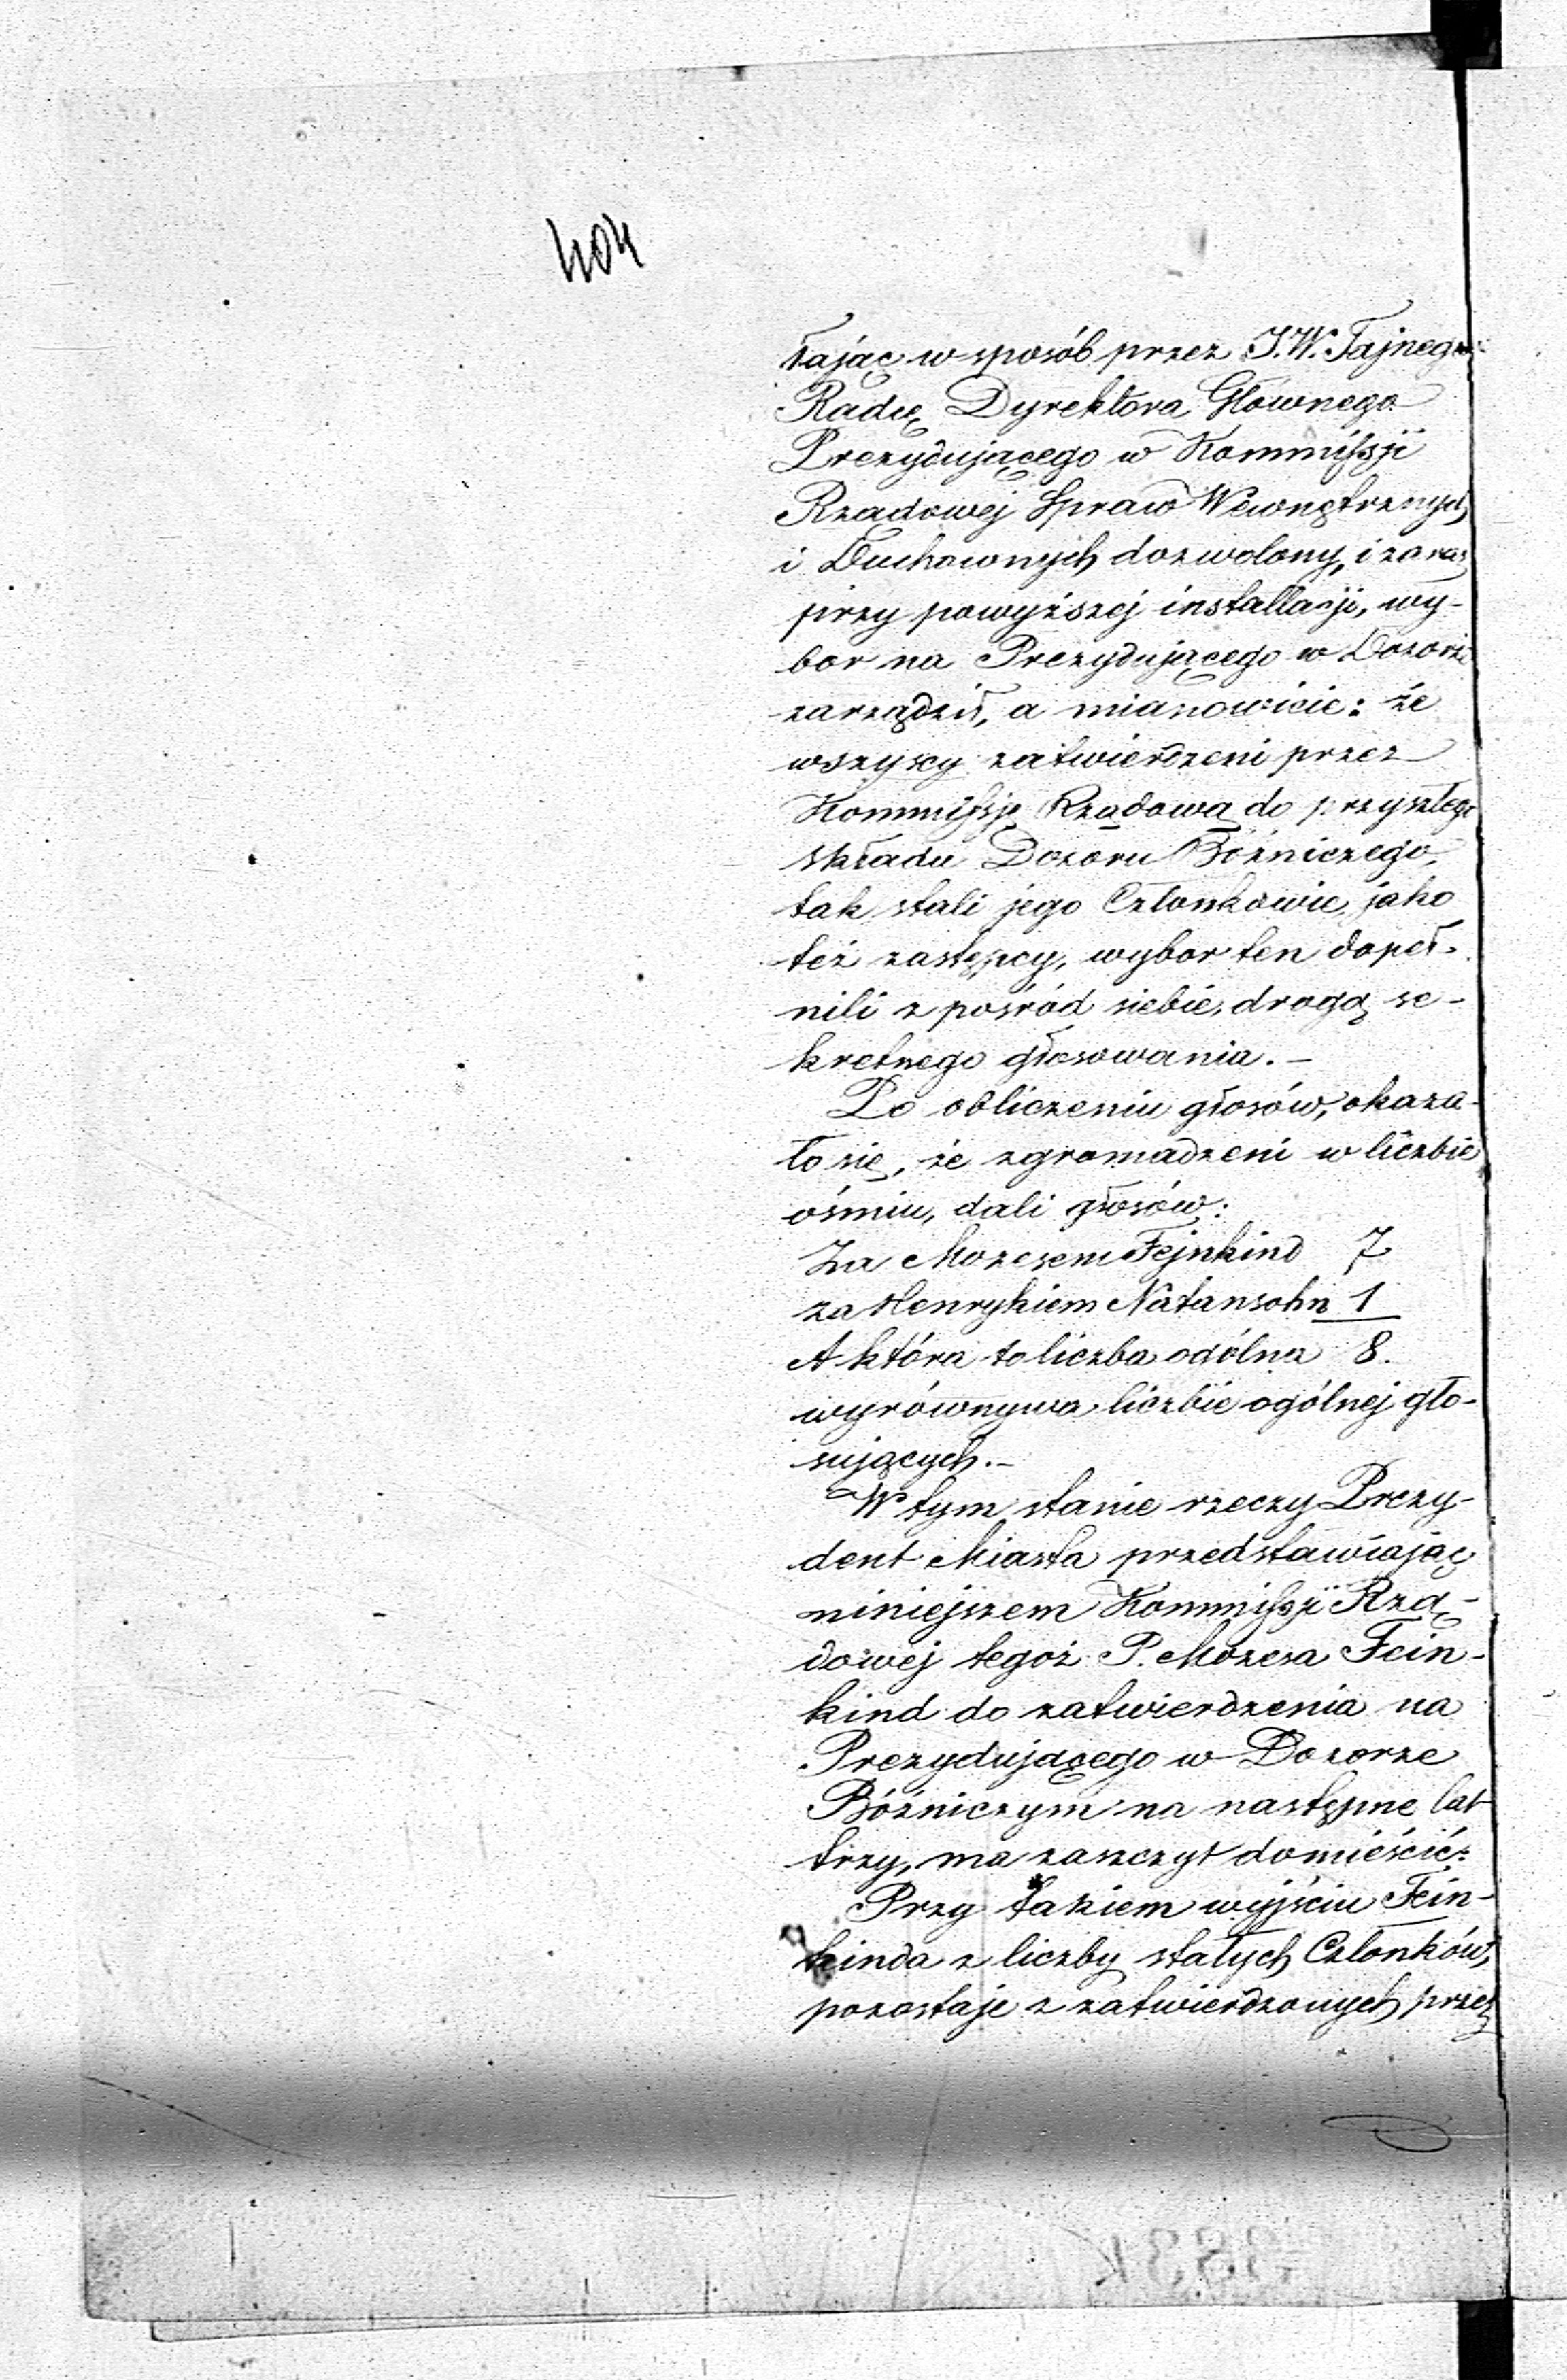 404
łając w sposób przez J.W. Tajnego
Radcę Dyrektora Głównego
Prezydującego w Kommissji
Rządowej Spraw Wewnętrznych
i Duchownych dozwolony, i zaraz
przy powyższej installacji, wy-
bor na Prezydującego w Dozorze
zarządził, a mianowicie: że
wszyscy zatwierdzeni przez
Kommissję Rządową do przyszłego
składu Dozoru Bóżniczego,
tak stali jego Członkowie, jako
też zastępcy, wybor ten dopeł-
nili z pośród siebie, drogą se-
kretnego głosowania. –
Po obliczeniu głosów, okaza-
ło się, że zgromadzeni w liczbie
ośmiu, dali głosów:
Za Mozesem Fejnkind 7
za Henrykiem Natansohn 1
A która to liczba ogólna 8.
wyrównywa liczbie ogólnej gło-
sujących. –
W tym stanie rzeczy Prezy-
dent Miasta przedstawiając
niniejszem Kommissji Rzą-
dowej tegoż P. Mozesa Fein-
kind do zatwierdzenia na
Prezydującego w Dozorze
Bóżniczym na następne lat
trzy, ma zaszczyt domieścić:
Przy takiem wyjściu Fein-
kinda z liczby stałych Członków,
pozostaje z zatwierdzonych przez